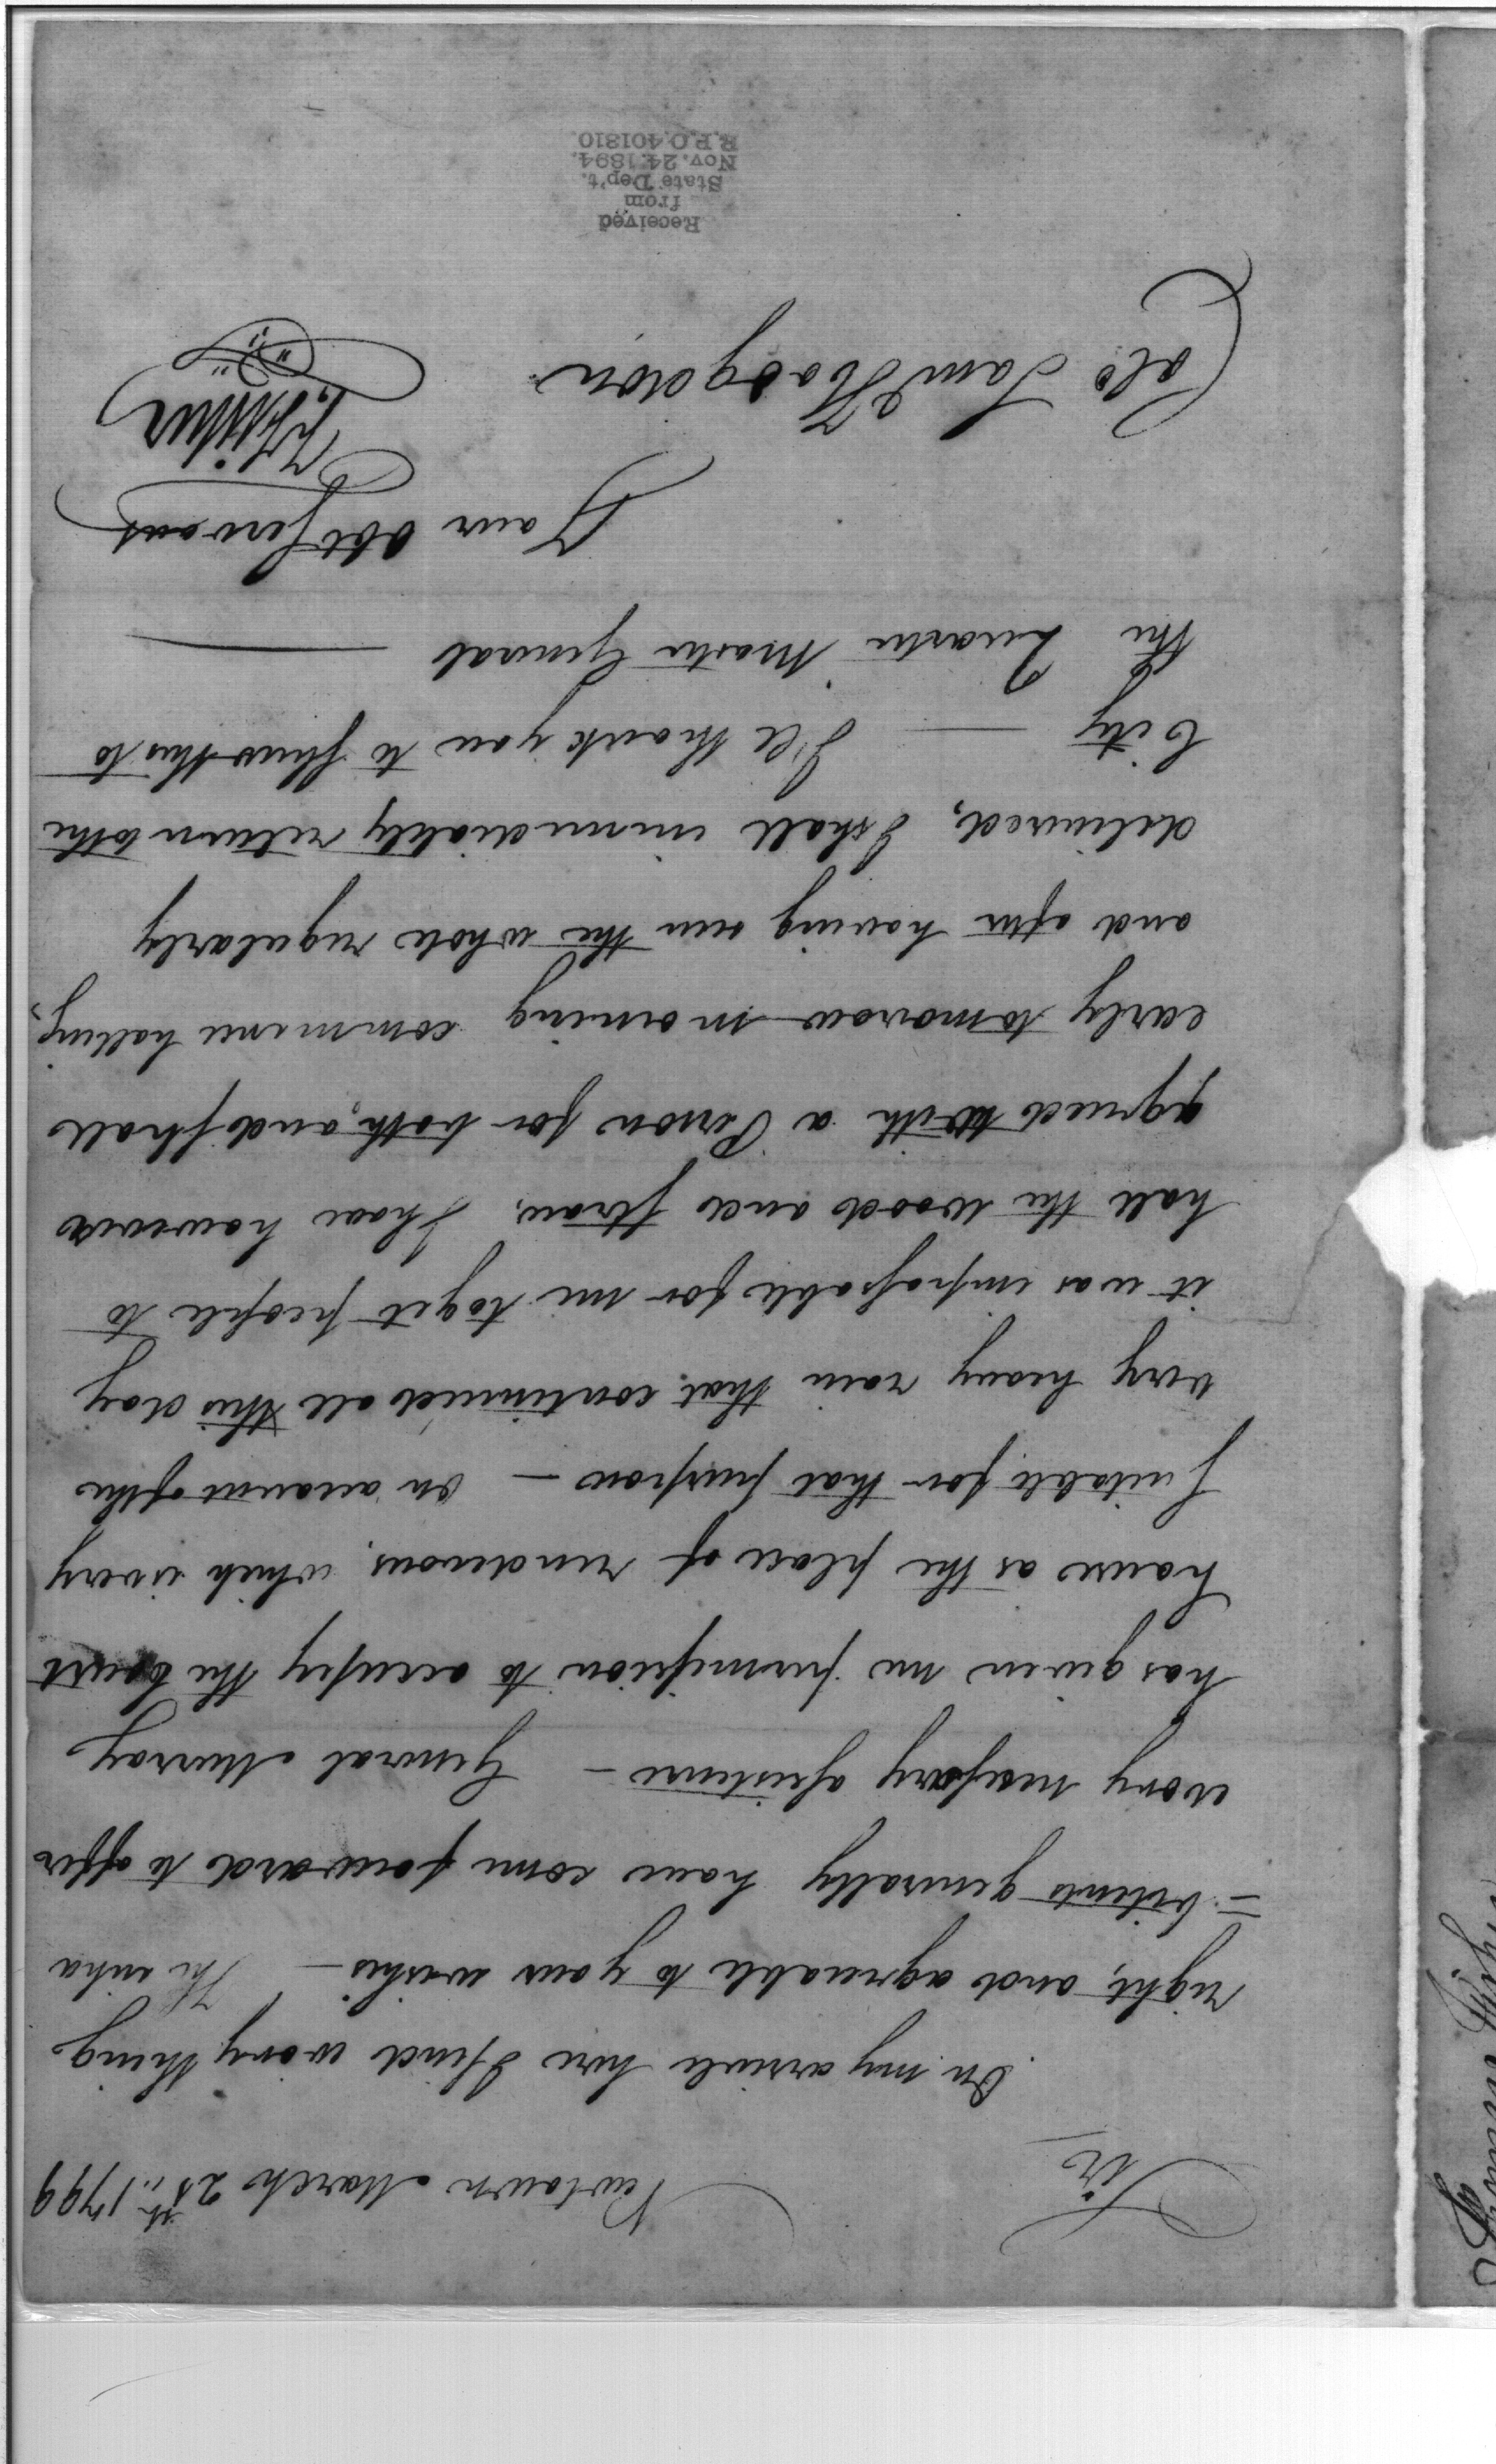 Newtown March 28th: 1799
Sir
On my arrival here I find every thing
right, and agreeable to your wishes — The inha
=bitents generally have come forward to offer
every necessary assistence — General Murray
has given me permission to occupy the Court
house as the place of rendevous, which is very
suitable for that purpose — On account of the
very heavy rain that continued all this day
it was impossable for me to get people to
hall the wood and straw, I have however
agreed with a Person for both, and shall
early tomorow morning commence halling,
and after having seen the whole regularly
delivered, I shall immediately return to the
City — I'll thank you to shew this to
the Quarter Master General
Your obt Servant
Col: Saml Hodgdon
Received
from
State Dep't.
Nov. 24, 1894.
R.P.O. 401810.